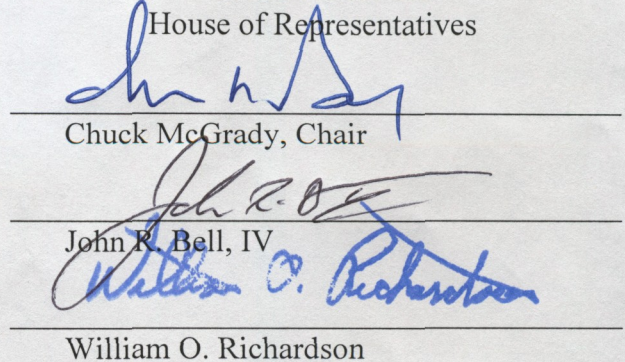 House of Representatives
Chuck McGrady, Chair
John R. B IV
John R. Bell, IV
William O. Richardson
William O. Richardson